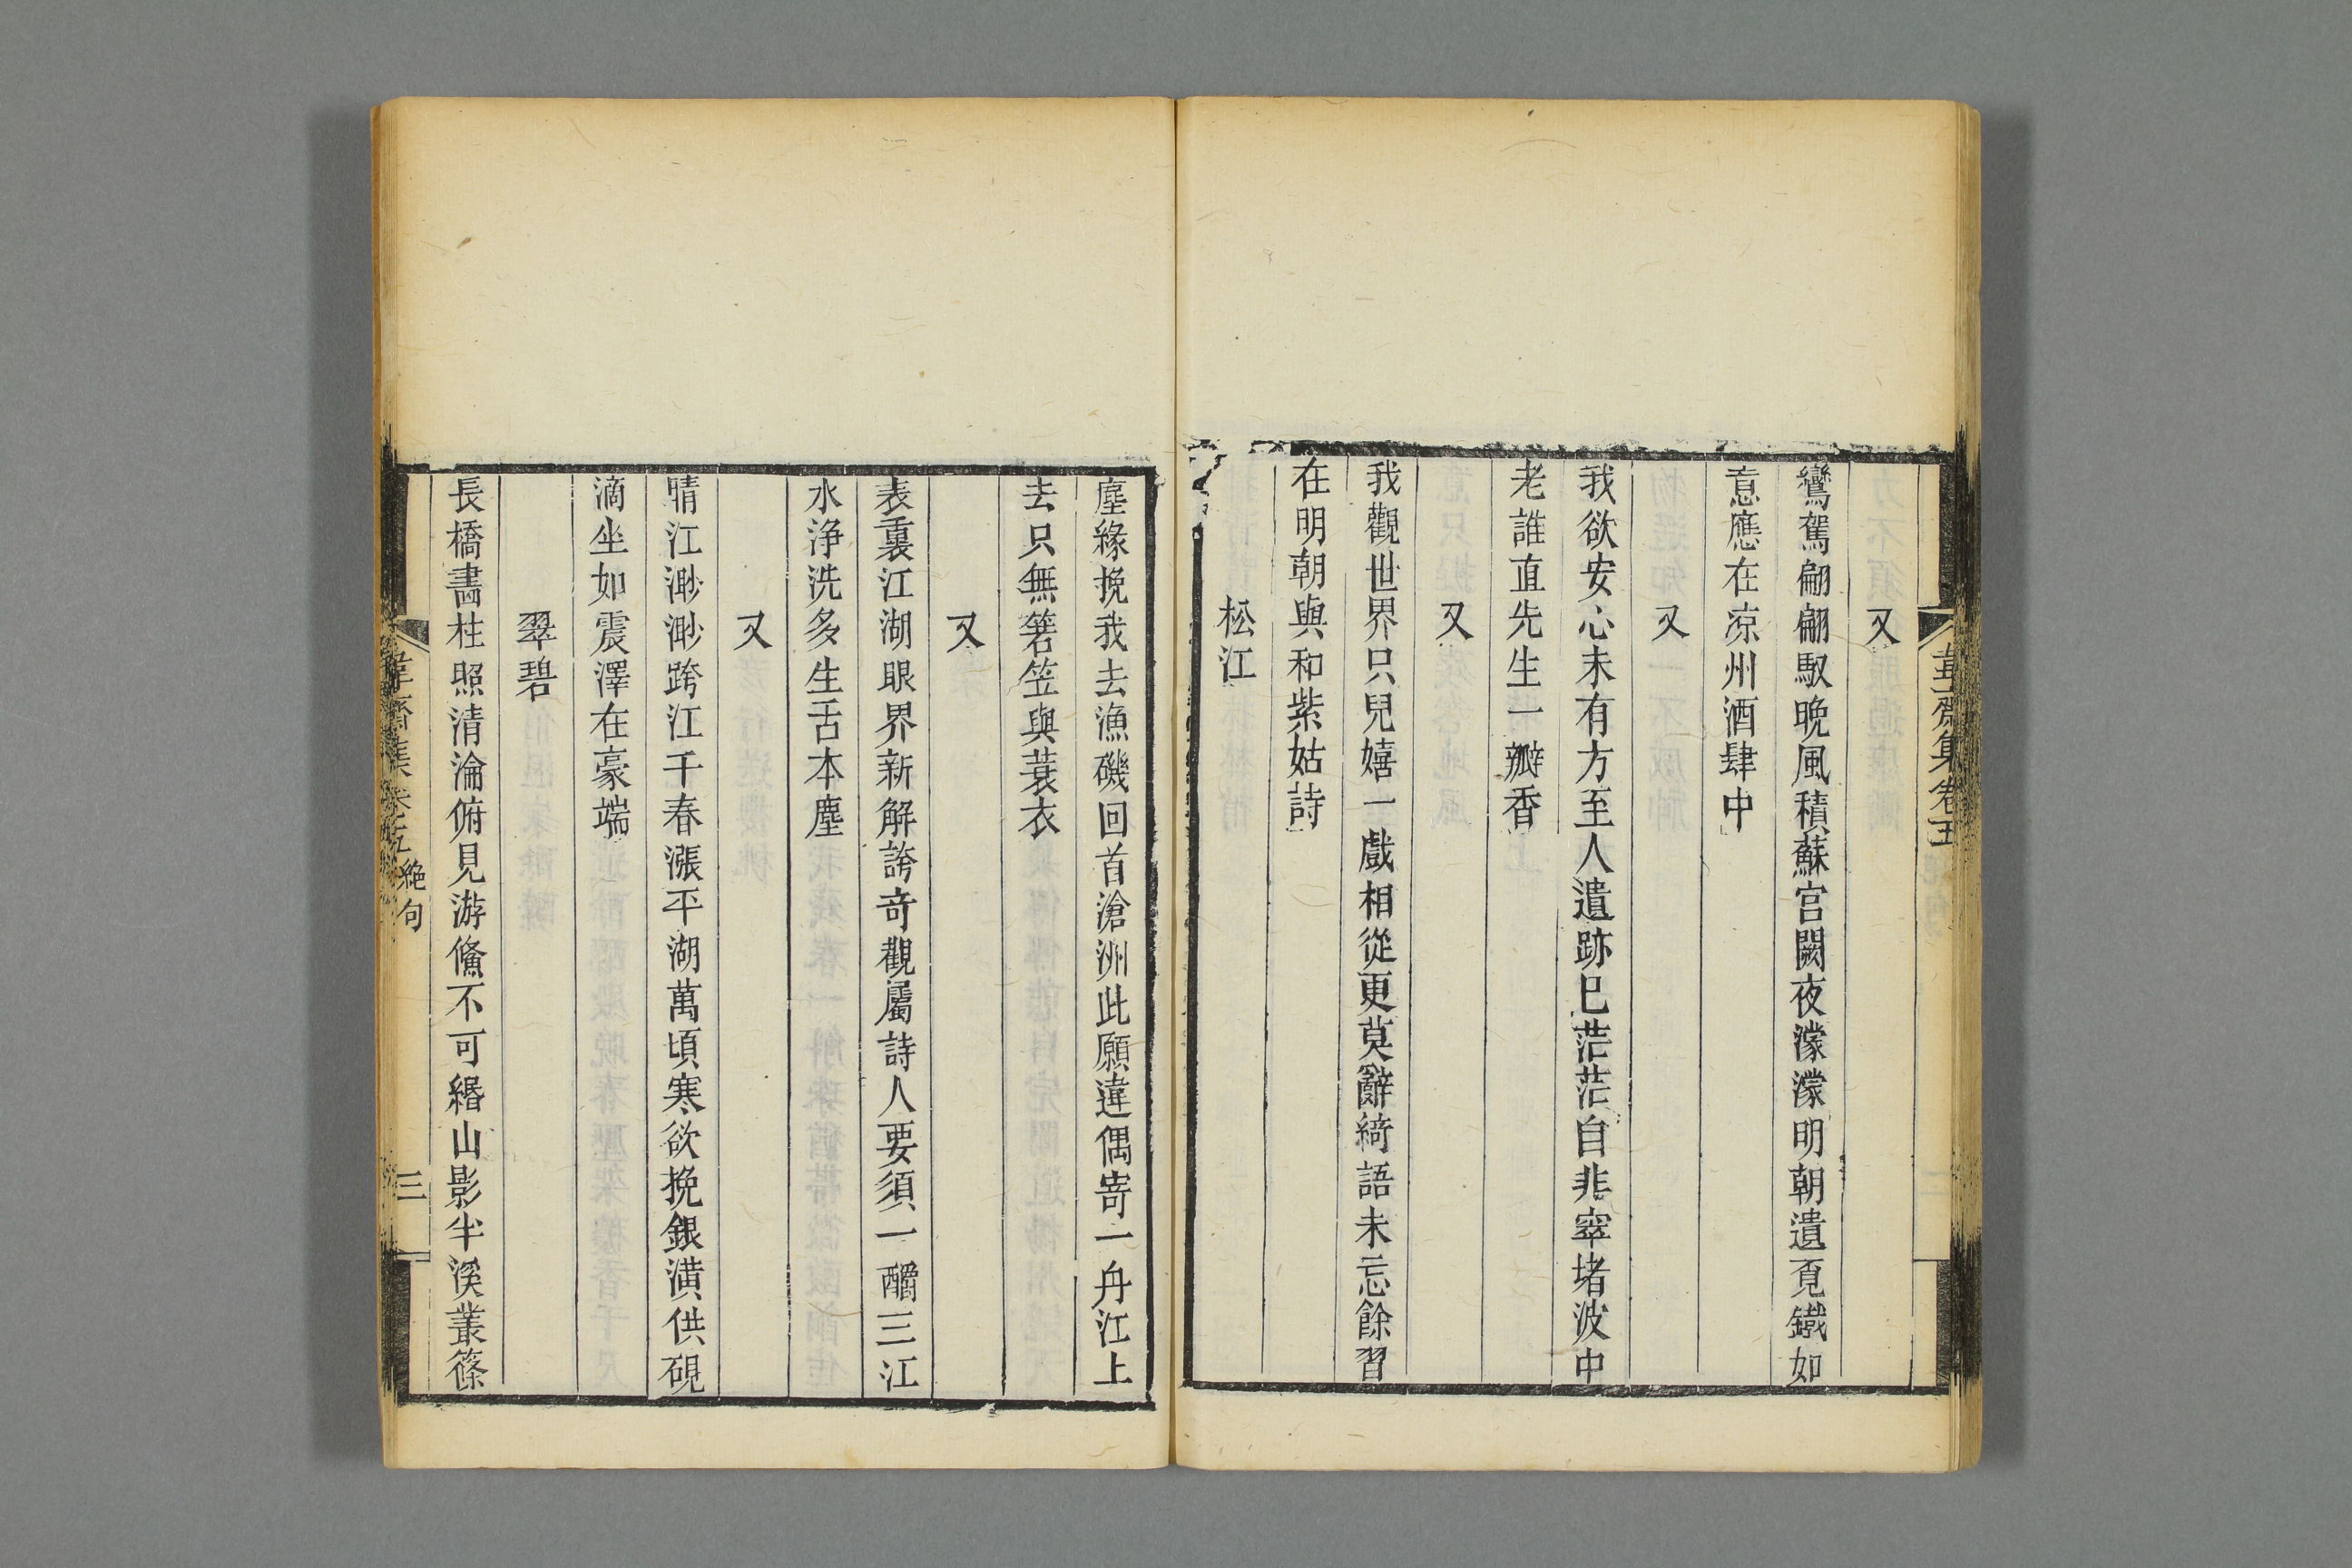 又
鸞駕翩翩馭晚風積蘇宫闕夜濛濛明朝遺覓鐵如
意應在凉州酒肆中
又
我欲安心未有方至人遺跡已茫茫自非窣堵波中
老誰直先生一瓣香
又
我觀世界只兒嬉一戲相從更莫辭綺語未忘餘習
在明朝與和紫姑詩
松江
塵緣挽我去漁磯回首滄洲此願違偶寄一舟江上
去只無箬笠與蓑衣
又
表裏江湖眼界新解誇奇觀屬詩人要須一醑三江
水浄洗多生舌本塵
又
晴江渺渺跨江千春漲平湖萬頃寒欲挽銀潢供硯
滴坐如震澤在豪端
翠碧
長橋畵柱照清淪俯見游鯈不可緡山影半溪叢篠
韋齋集卷五
韋齋集卷五 絶句
三